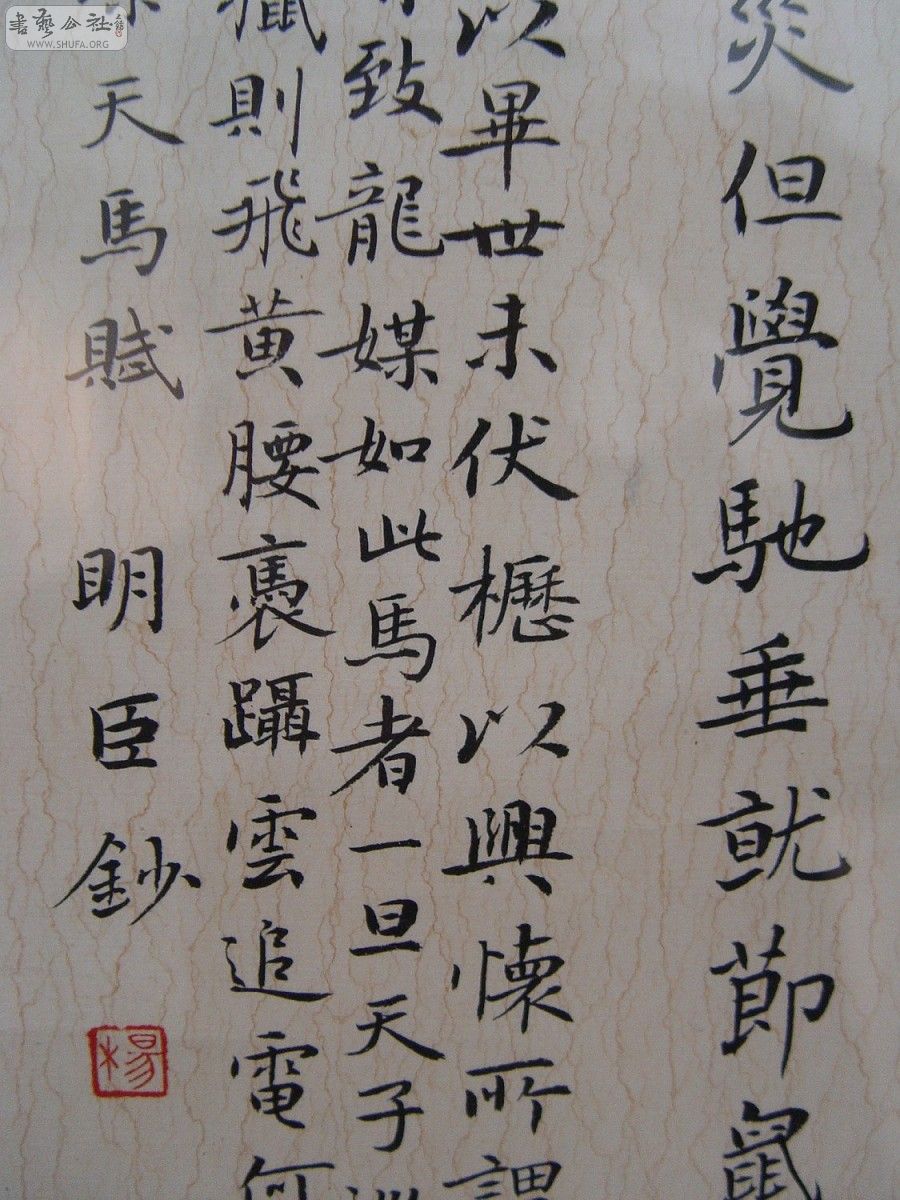 災但覺馳垂就節鼠
以畢世未伏櫪以興懷所謂
致龍媒如此馬者一旦天子巡
獵則飛黄腰褭躡雲追電何
天馬賦 明臣鈔
楊
書藝公社
WWW.SHUFA.ORG